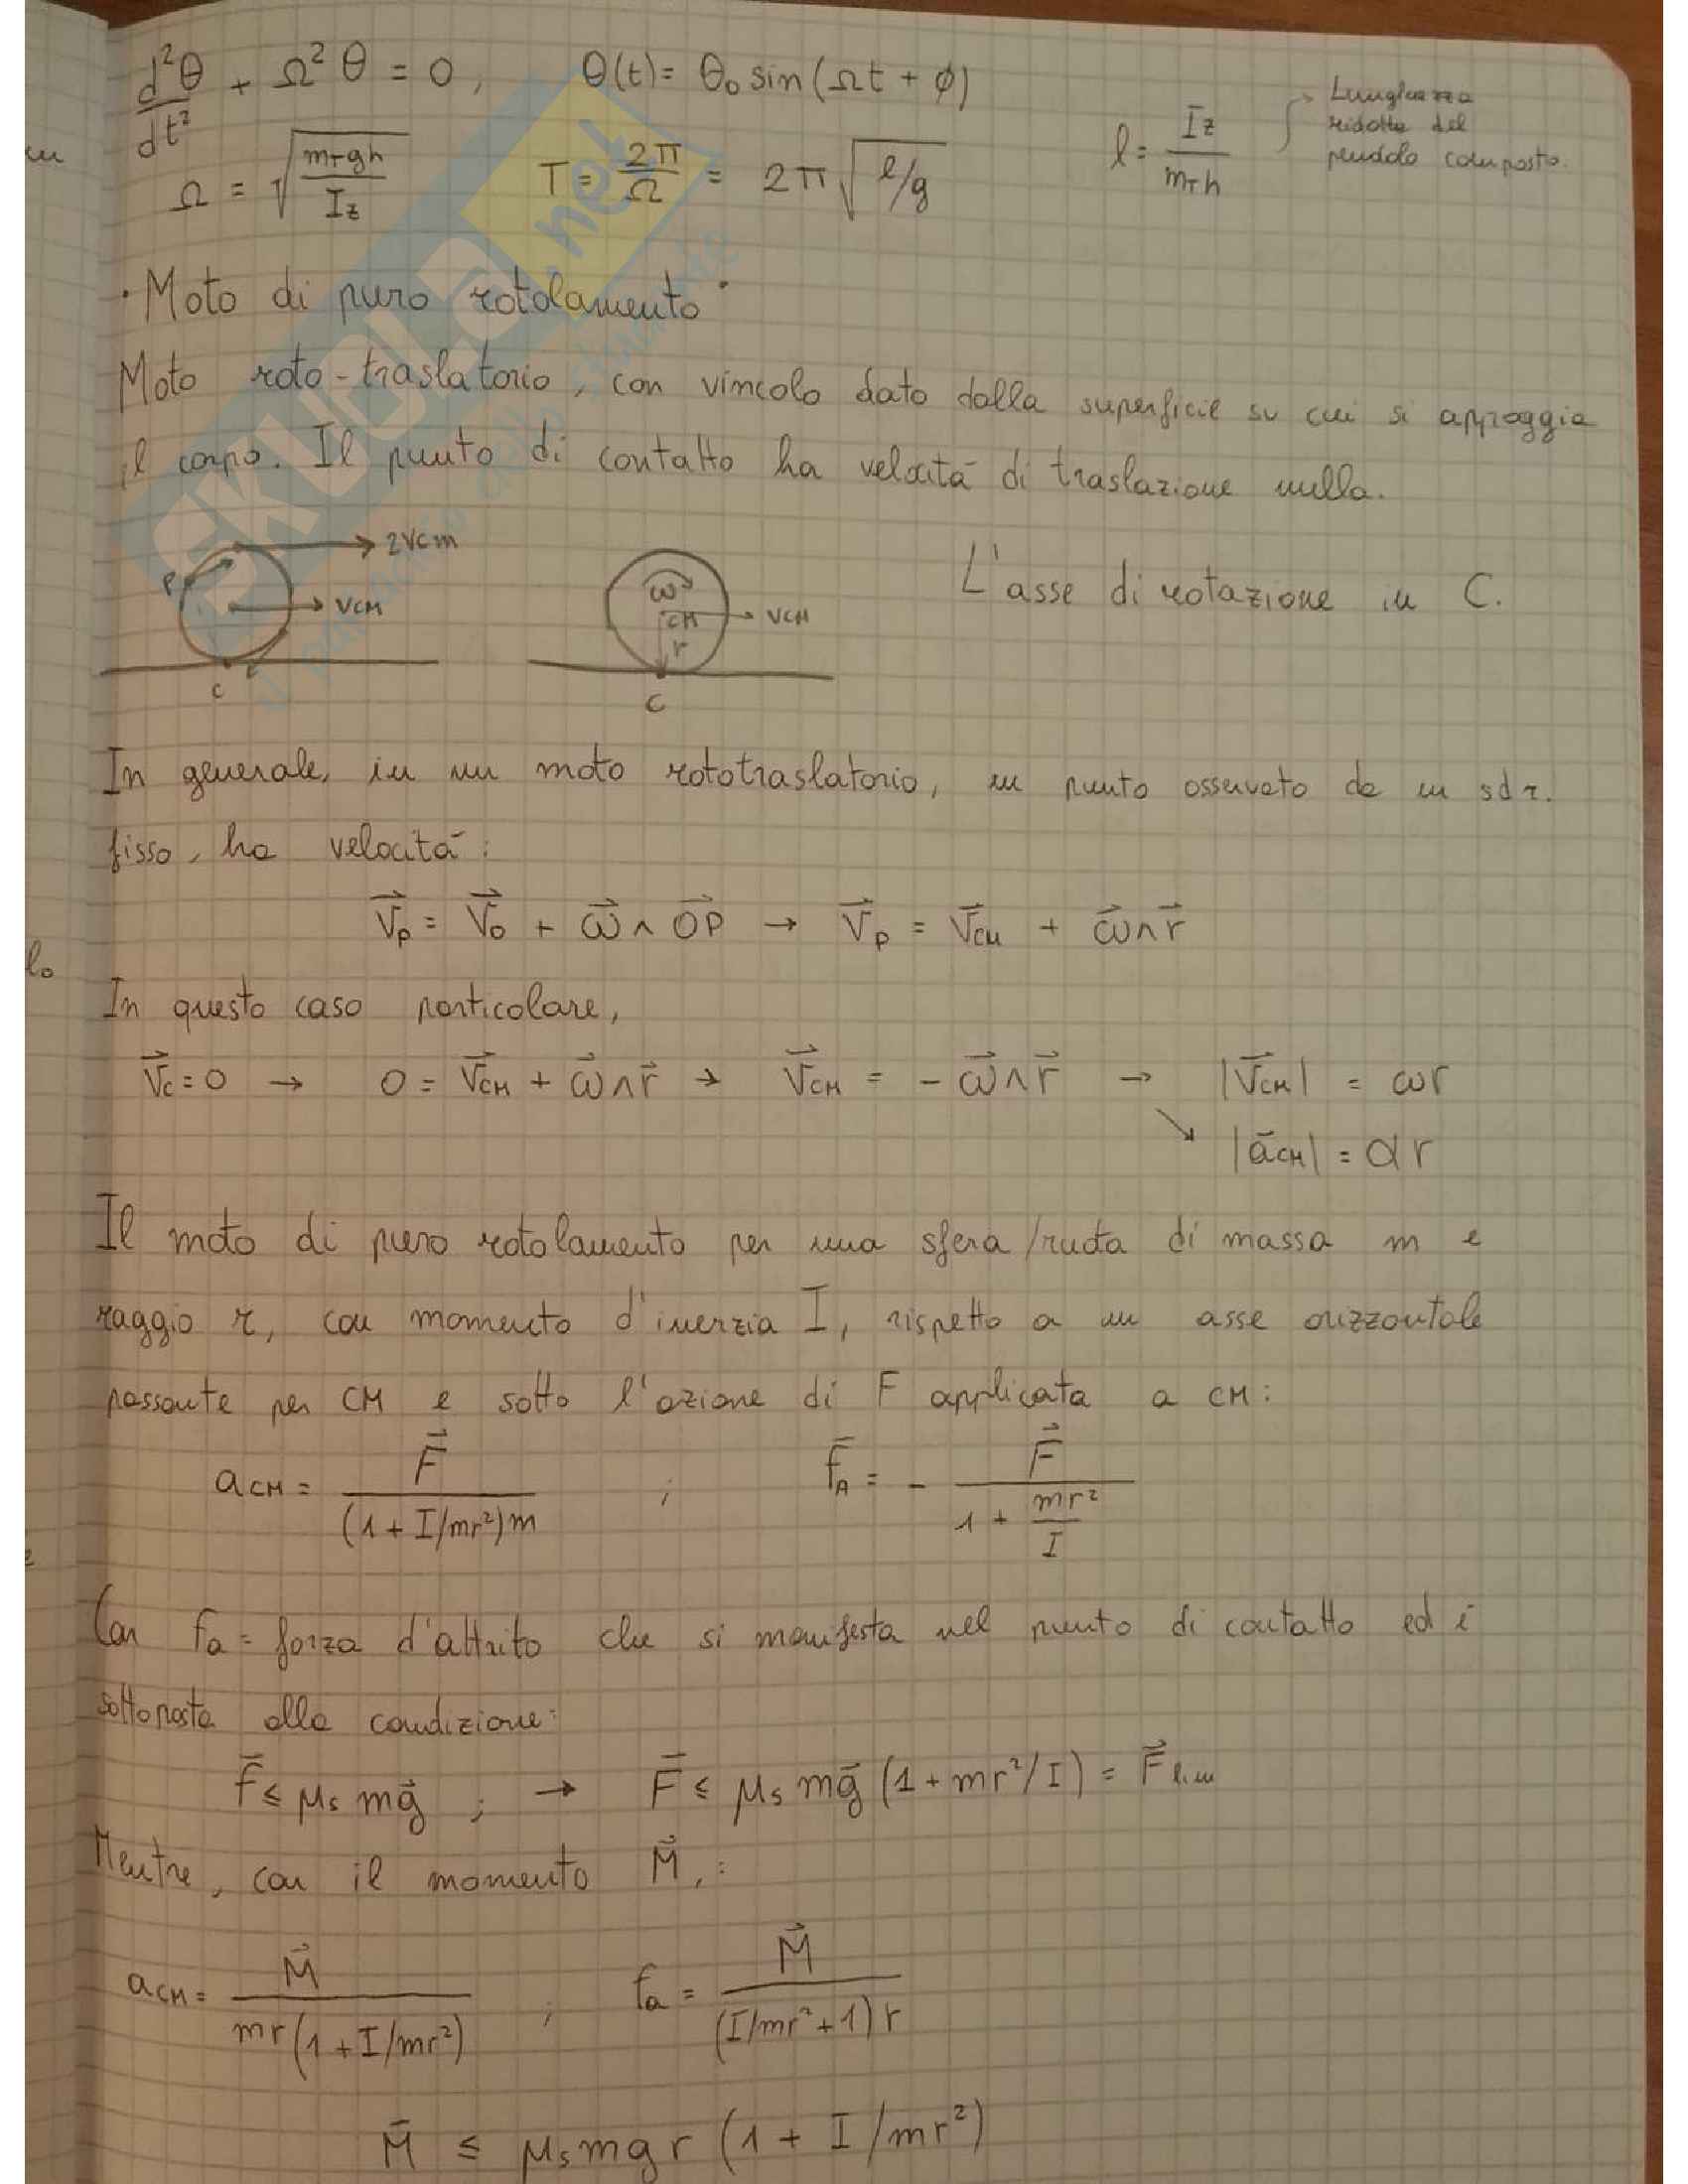 d²θ/dt² + Ω²θ = 0, θ(t) = θ₀ sin(Ωt + ϕ)
Ω = √(m_T gh / I_z) T = 2π/Ω = 2π √(l/g) l = I_z / m_T h
Lunghezza
ridotta del
pendolo composto.
· Moto di puro rotolamento ·
Moto roto-traslatorio, con vincolo dato dalla superficie su cui si appoggia
il corpo. Il punto di contatto ha velocità di traslazione nulla.
P 2VCM VCM C
ω CM VCM r C
L'asse di rotazione in C.
In generale, in un moto rototraslatorio, un punto osservato da un sdr.
fisso, ha velocità:
V⃗_P = V⃗_O + ω⃗ ∧ OP⃗ → V⃗_P = V⃗_CM + ω⃗ ∧ r⃗
In questo caso particolare,
V⃗_C = 0 → 0 = V⃗_CM + ω⃗ ∧ r⃗ → V⃗_CM = - ω⃗ ∧ r⃗ → |V⃗_CM| = ωr
↘ |a⃗_CM| = αr
Il moto di puro rotolamento per una sfera/ruota di massa m e
raggio r, con momento d'inerzia I, rispetto a un asse orizzontale
passante per CM e sotto l'azione di F applicata a CM:
a_CM = F⃗ / (1 + I/mr²)m ; f⃗_A = - F⃗ / (1 + mr²/I)
Con fa = forza d'attrito che si manifesta nel punto di contatto ed è
sottoposta alla condizione:
f⃗ ≤ μs mg⃗ ; → F⃗ ≤ μs mg⃗ (1 + mr²/I) = F⃗ lim
Mentre, con il momento M⃗,:
a_CM = M⃗ / mr(1 + I/mr²) ; fa = M⃗ / (I/mr² + 1) r
M⃗ ≤ μs mgr (1 + I/mr²)
SKUOLA.net